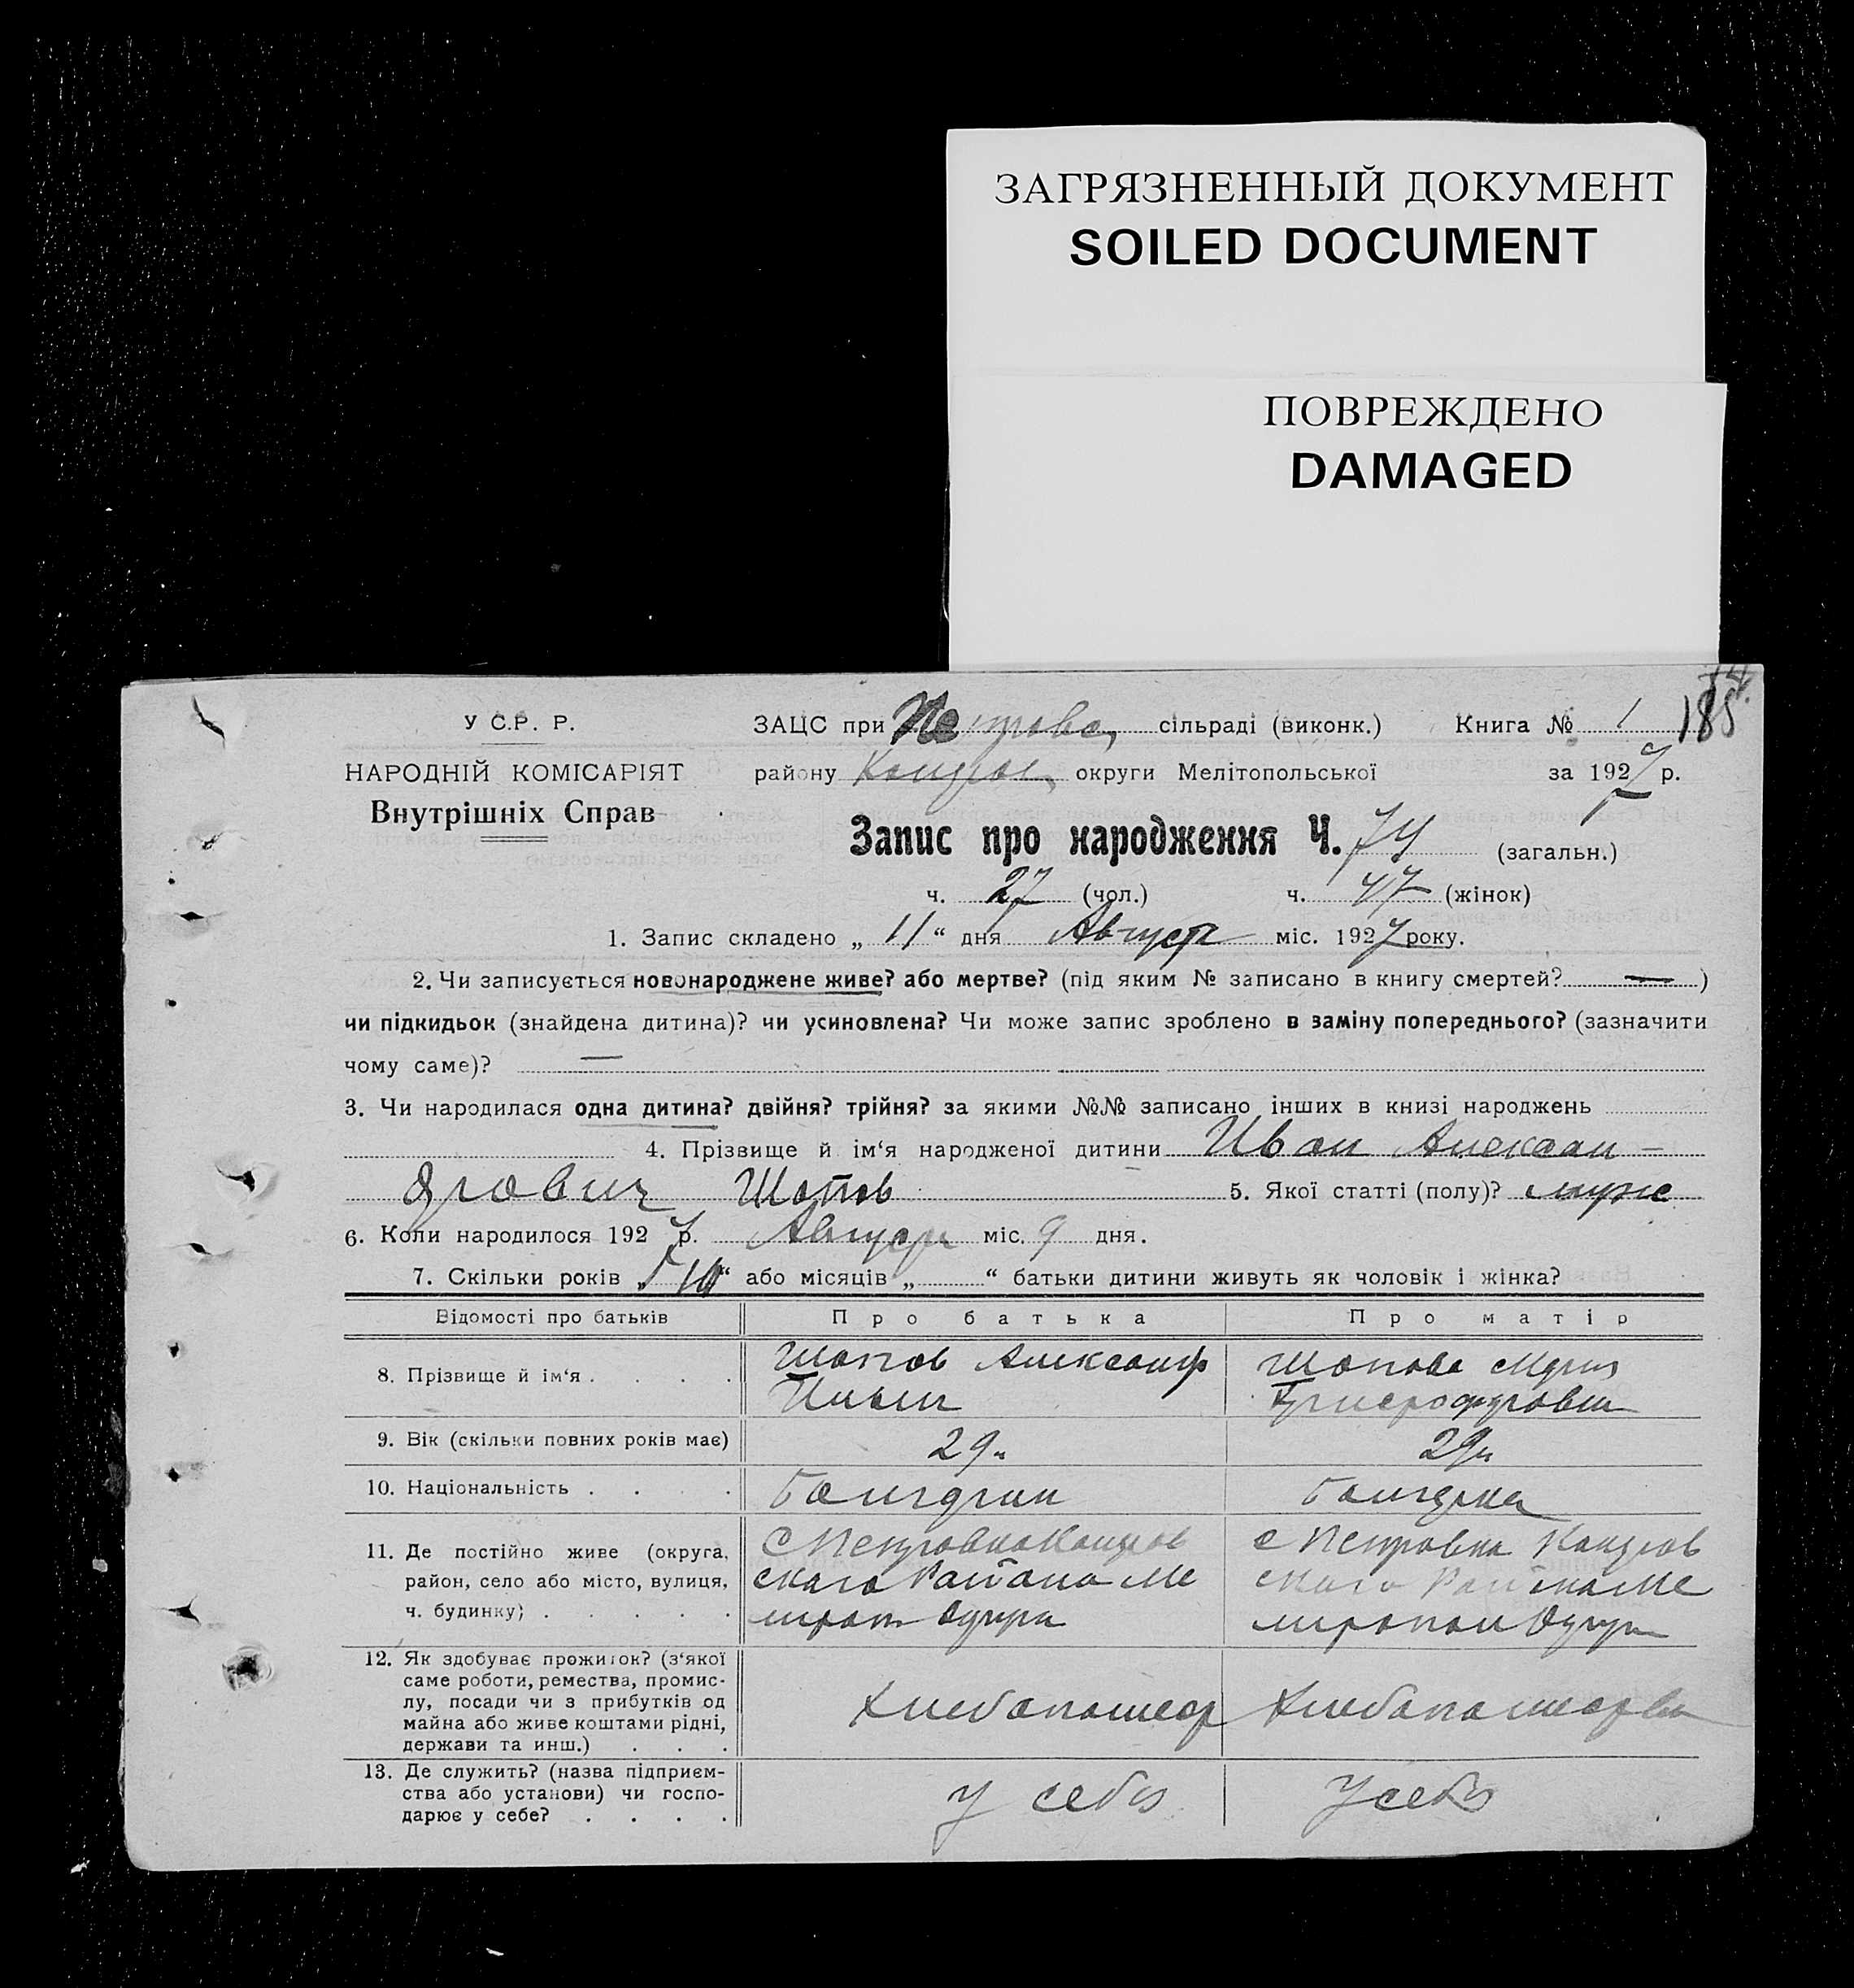 ЗАГРЯЗНЕННЫЙ ДОКУМЕНТ
SOILED DOCUMENT
ПОВРЕЖДЕНО
DAMAGED
185
У С.Р. Р. ЗАЦС при Петровс, сільраді (виконк.) Книга № 1
НАРОДНІЙ КОМІСАРІЯТ району округи Мелітопольської за 1927 р.
Внутрішніх Справ
Запис про народження Ч. 74 (загальн.)
ч. 27 (чол.) ч. 47 (жінок)
1. Запис складено „ 11 “ дня Август міс. 1927 року.
2. Чи записується новонароджене живе? або мертве? (під яким № записано в книгу смертей? — )
чи підкидьок (знайдена дитина)? чи усиновлена? Чи може запис зроблено в заміну попереднього? (зазначити
чому саме)? —
3. Чи народилася одна дитина? двійня? трійня? за якими №№ записано інших в книзі народжень
4. Прізвище й ім‘я народженої дитини Иван Алексан -
дрович Шопов 5. Якої статті (полу)? муже
6. Коли народилося 1927 р. Август міс. 9 дня.
7. Скільки років „ “ або місяців „ “ батьки дитини живуть як чоловік і жінка?
Відомості про батьків Про батька Про матір
8. Прізвище й ім‘я . . . . Шопов Александр Шопова Мария
Ильич
9. Вік (скільки повних років має) 29л 29л
10. Національність . . . . Болгарин Болгарка
11. Де постійно живе (округа, с Петровка с Петровка
район, село або місто, вулиця, ского Района Ме ского Района Ме
ч. будинку) . . . . . литоп Округа литопол Округа
12. Як здобуває прожиток? (з‘якої
саме роботи, ремества, промис-
лу, посади чи з прибутків од Хлебопашеср Хлебопашеср
майна або живе коштами рідні,
держави та инш.) . . .
13. Де служить? (назва підприєм-
ства або установи) чи госпо- у себя у себя
дарює у себе? . . . .